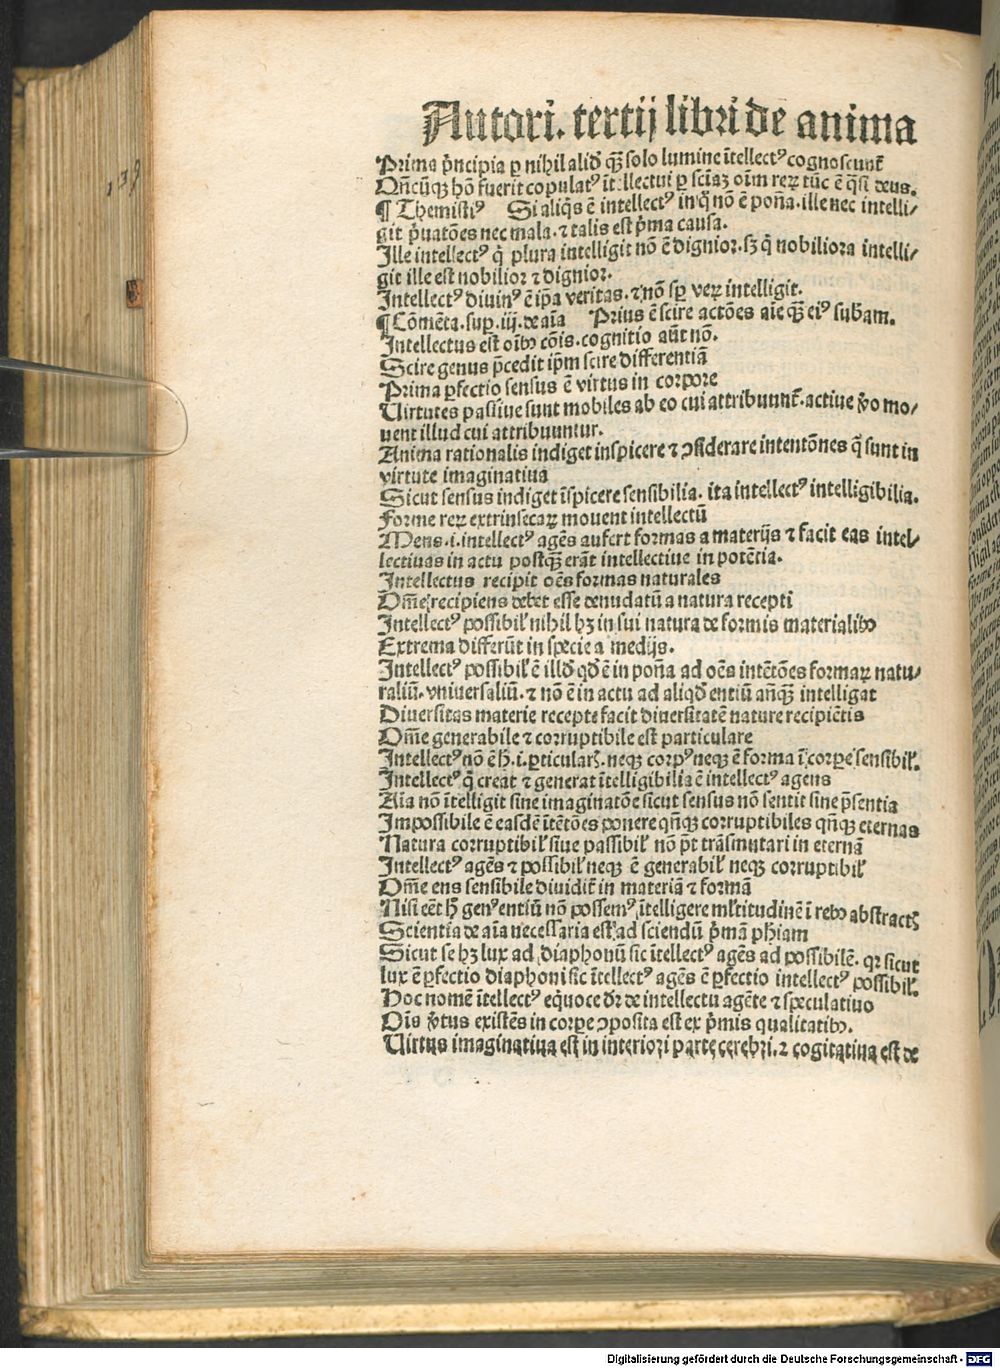 Autori. tertij libri de anima
Prima p̃ncipia ꝑ nihil aliđ qꝫ̃ solo lumine ĩtellectꝰ cognoscunt̃
Oñcũqꝫ hõ fuerit copulatꝰ ĩtellectui ꝑ sciaꝫ oĩm reꝝ tũc ẽ q̃si deus.
¶ Themistiꝰ Si aliq̃s ẽ intellectꝰ in q̃ nõ ẽ põna. ille nec intelli/
git p̃uatões nec mala. ⁊ talis est p̃ma causa.
Ille intellectꝰ q̃ plura intelligit nõ ẽ dignior. sꝫ q̃ nobiliora intelli/
git ille est nobilior ⁊ dignior.
Intellectꝰ diuinꝰ ẽ ip̃a veritas. ⁊ nõ sꝑ veꝝ intelligit.
¶ Cõmẽta. sup. iij. de aĩa Prius ẽ scire actões aĩe qꝫ̃ eiꝰ subãm.
Intellectus est oĩbꝰ cõis. cognitio aũt nõ.
Scire genus p̃cedit ip̃m scire differentiã
Prima ꝑfectio sensus ẽ virtus in corpore
Uirtutes passiue sunt mobiles ab eo cui attribuunt̃. actiue ṽo mo/
uent illud cui attribuuntur.
Anima rationalis indiget inspicere ⁊ ꝯsiderare intentões q̃ sunt in
virtute imaginatiua
Sicut sensus indiget ĩspicere sensibilia. ita intellectꝰ intelligibilia.
Forme reꝝ extrinsecaꝝ mouent intellectũ
Mens. i. intellectꝰ agẽs aufert formas a materijs ⁊ facit eas intel/
lectiuas in actu postqꝫ̃ erãt intellectiue in potẽtia.
Intellectus recipit oẽs formas naturales
Om̃e recipiens debet esse denudatũ a natura recepti
Intellectꝰ possibil' nihil hꝫ in sui natura de formis materialibꝰ
Extrema differũt in specie a medijs.
Intellectꝰ possibil' ẽ illđ qđ ẽ in põna ad oẽs intẽtões formaꝝ natu/
raliũ. vniuersaliũ. ⁊ nõ ẽ in actu ad aliqđ entiũ añqꝫ̃ intelligat
Diuersitas materie recepte facit diuersitatẽ nature recipiẽtis
Om̃e generabile ⁊ corruptibile est particulare
Intellectꝰ nõ ẽ h̃. i. ꝑticularꝭ. neqꝫ corpꝰ neqꝫ ẽ forma ĩ corꝑe sensibil'.
Intellectꝰ q̃ creat ⁊ generat ĩtelligibilia ẽ intellectꝰ agens
Aĩa nõ ĩtelligit sine imaginatõe sicut sensus nõ sentit sine p̃sentia
Impossibile ẽ easdẽ ĩtẽtões ponere qñqꝫ corruptibiles qñqꝫ eternas
Natura corruptibil' siue passibil' nõ p̃t trãsmutari in eternã
Intellectꝰ agẽs ⁊ possibil' neqꝫ ẽ generabil' neqꝫ corruptibil'
Om̃e ens sensibile diuidit̃ in materiã ⁊ formã
Nisi eẽt h̃ genꝰ entiũ nõ possemꝰ ĩtelligere ml'titudinẽ ĩ rebꝰ abstractꝭ
Scientia de aĩa necessaria est ad sciendũ p̃mã ph̃iam
Sicut se hꝫ lux ad diaphonũ sic ĩtellectꝰ agẽs ad possibilẽ. qꝛ sicut
lux ẽ ꝑfectio diaphoni sic ĩtellectꝰ agẽs ẽ ꝑfectio intellectꝰ possibil'.
Hoc nomẽ ĩtellectꝰ eq̃uoce dr̃ de intellectu agẽte ⁊ speculatiuo
Oĩs ṽtus existẽs in corꝑe ꝯposita est ex p̃mis qualitatibꝰ.
Uirtus imaginatiua est in interiori parte cerebri. ⁊ cogitatiua est de
139
Digitalisierung gefördert durch die Deutsche Forschungsgemeinschaft - DFG